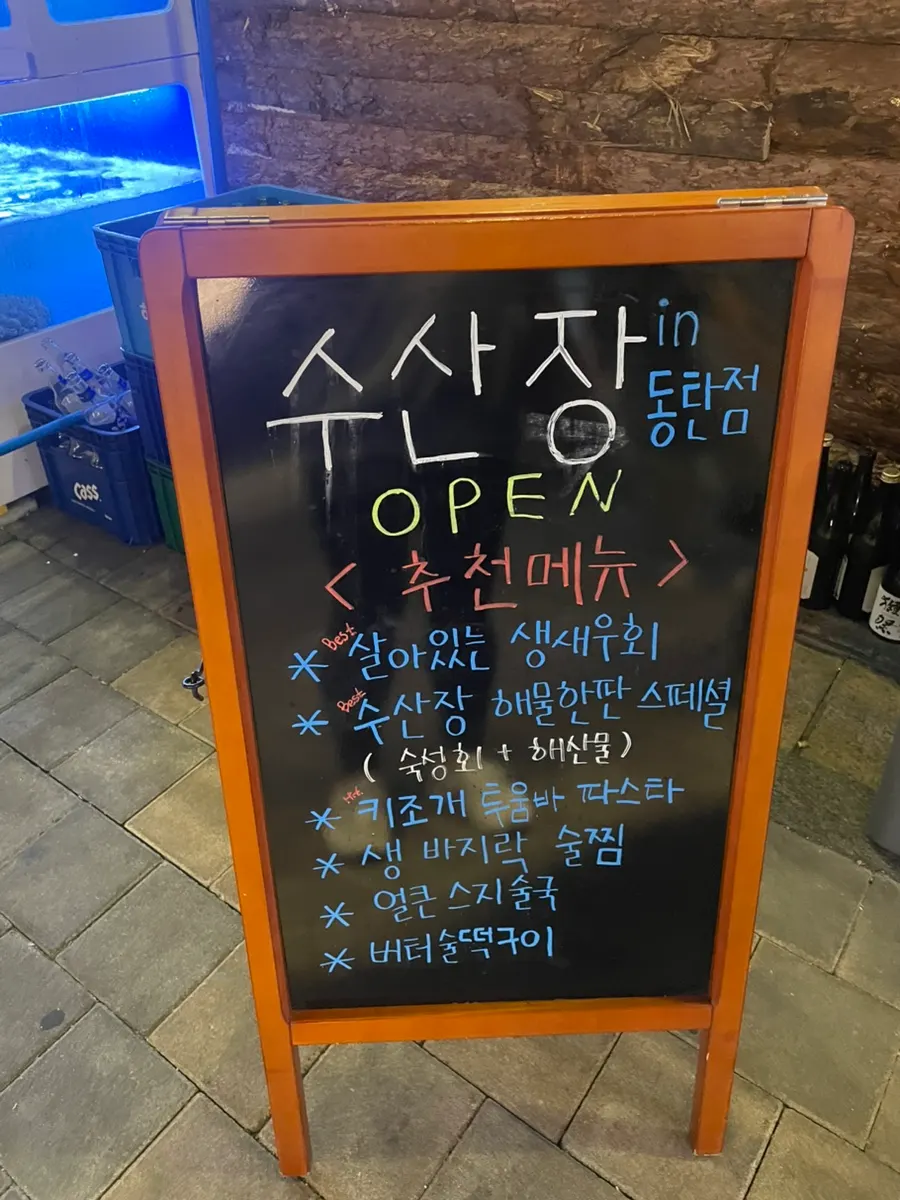 수산장 in
동탄점
OPEN
< 추천메뉴 >
* Best 살아있는 생새우회
* Best 수산장 해물한판 스페셜
( 숙성회 + 해산물 )
* Hit 키조개 투움바 파스타
* 생 바지락 술찜
* 얼큰 스지술국
* 버터술떡구이
Cass